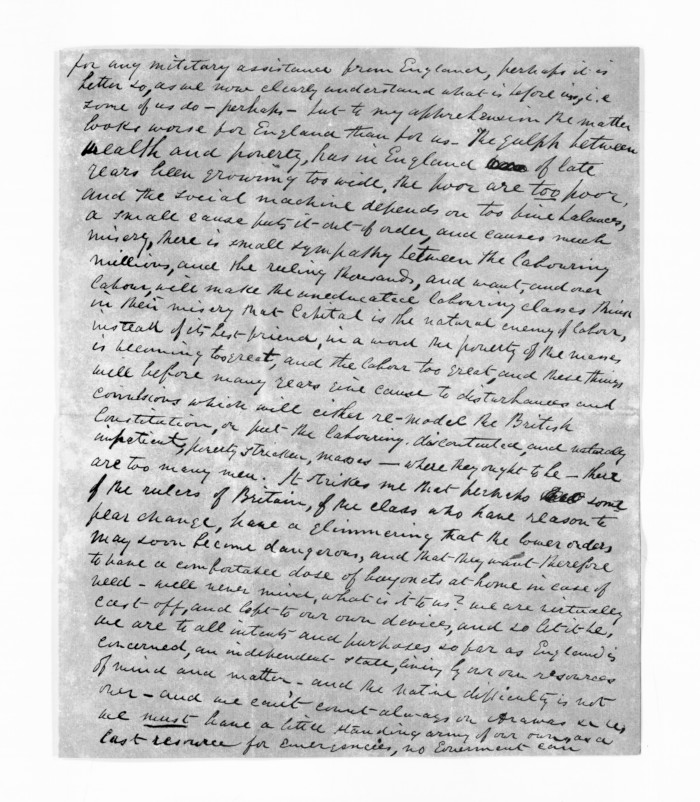 for any military assistance from England, perhaps it is
better so, as we now clearly understand what is before us, i.e
some of us do - perhaps - but to my apprehension the matter
looks worse for England than for us - The gulph between
wealth and poverty, has in England of late
years been growing too wide, the poor are too poor,
and the social machine depends on too fine balances,
a small cause puts it out of order, and causes much
misery, there is small sympathy between the labouring
millions, and the ruling thousands, and want, and over
labour, will make the uneducated labouring classes think
in their misery that Capital is the natural enemy of labour,
instead of its best friend, in a word the poverty of the masses
is becoming too great, and the labour too great, and these things
will before many years give cause to disturbances and
convulsions which will either re-model the British
Constitution, or put the labouring, discontented, and naturally
impatient, poverty stricken, masses - where they ought to be - there
are too many men. It strikes me that perhaps some
of the rulers of Britain, of the class who have reason to
fear change, have a glimmering that the lower orders
may soon become dangerous, and that they want therefore
to have a comfortable dose of bayonets at home in case of
need - well never mind, what is it to us? we are virtually
cast off, and left to our own devices, and so let it be,
we are to all intents and purposes so far as England is
concerned, an independent state, living by our own resources
of mind and matter - and the native difficulty is not
over - and we can't count always on Arawas
we must have a little standing army of our own, as a
last resource for emergencies, no Government can